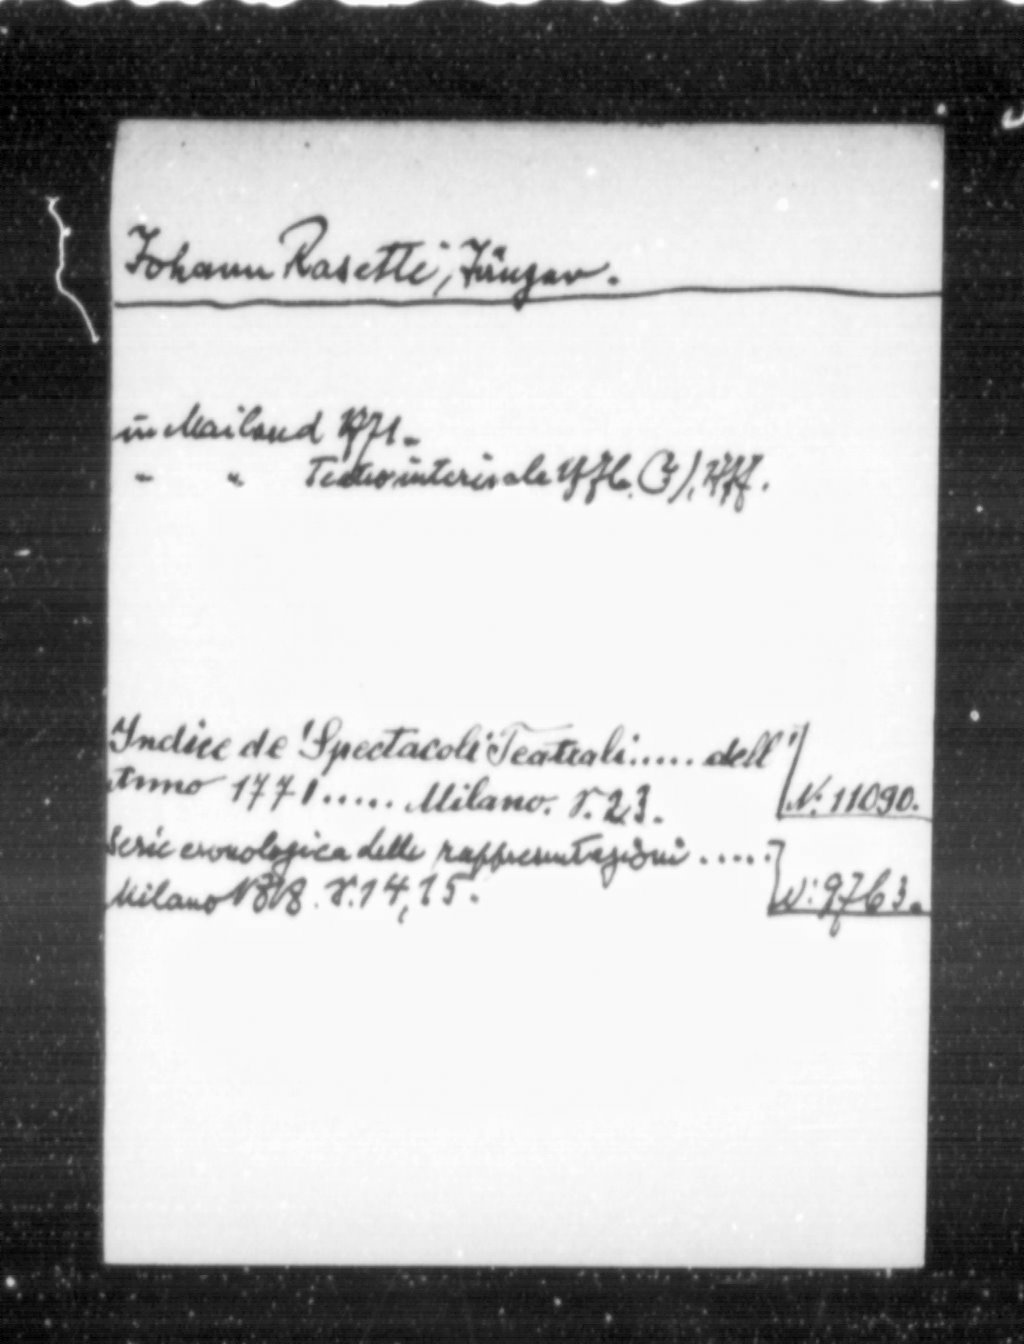 Johann Rasetti, Sänger.
in Mailand 1771.
" " Teatro interinale 1776. (?), 1777.
Indice de' Spectacoli Teatrali..... dell'
Anno 1771..... Milano. S. 23. N: 11090.
Serie cronologica delle rappresentazioni.....
Milano 1818. S. 14, 15. N: 9763.